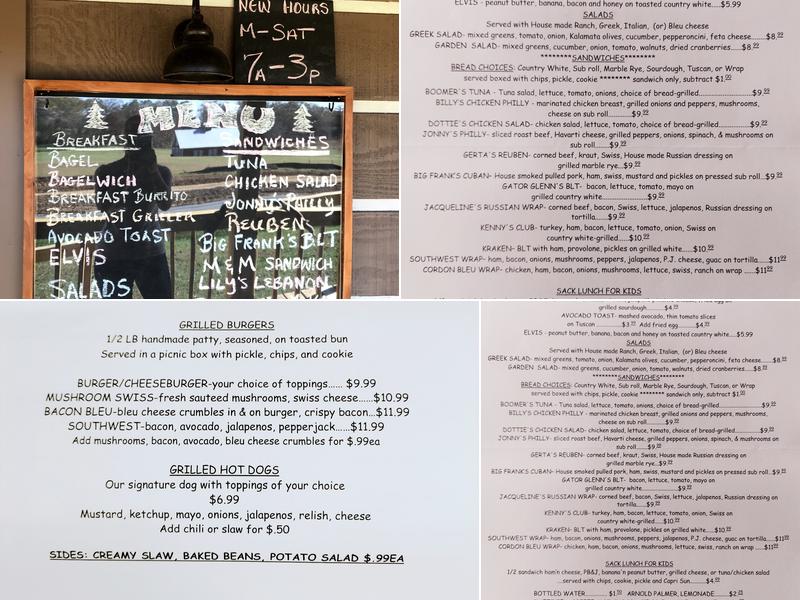 NEW HOURS
M-SAT
7A-3P
MENU
BREAKFAST
BAGEL
BAGELWICH
BREAKFAST BURRITO
BREAKFAST GRILLER
AVOCADO TOAST
ELVIS
SALADS
SANDWICHES
TUNA
CHICKEN SALAD
JONNY'S PHILLY
REUBEN
BIG FRANK'S BLT
M&M SANDWICH
LILY'S LEBANON
ELVIS - peanut butter, banana, bacon and honey on toasted country white.....$5.99
SALADS
Served with House made Ranch, Greek, Italian, (or) Bleu cheese
GREEK SALAD- mixed greens, tomato, onion, Kalamata olives, cucumber, pepperoncini, feta cheese......$8.99
GARDEN SALAD- mixed greens, cucumber, onion, tomato, walnuts, dried cranberries......$8.99
********SANDWICHES********
BREAD CHOICES: Country White, Sub roll, Marble Rye, Sourdough, Tuscan, or Wrap
served boxed with chips, pickle, cookie ******** sandwich only, subtract $1.00
BOOMER'S TUNA - Tuna salad, lettuce, tomato, onions, choice of bread-grilled....................$9.99
BILLY'S CHICKEN PHILLY - marinated chicken breast, grilled onions and peppers, mushrooms,
cheese on sub roll..............$9.99
DOTTIE'S CHICKEN SALAD- chicken salad, lettuce, tomato, choice of bread-grilled.................$9.99
JONNY'S PHILLY- sliced roast beef, Havarti cheese, grilled peppers, onions, spinach, & mushrooms on
sub roll.........$9.99
GERTA'S REUBEN- corned beef, kraut, Swiss, House made Russian dressing on
grilled marble rye...$9.99
BIG FRANK'S CUBAN- House smoked pulled pork, ham, swiss, mustard and pickles on pressed sub roll..$9.99
GATOR GLENN'S BLT- bacon, lettuce, tomato, mayo on
grilled country white..............$9.99
JACQUELINE'S RUSSIAN WRAP- corned beef, bacon, Swiss, lettuce, jalapenos, Russian dressing on
tortilla......$9.99
KENNY'S CLUB- turkey, ham, bacon, lettuce, tomato, onion, Swiss on
country white-grilled.....$10.99
KRAKEN- BLT with ham, provolone, pickles on grilled white.....$10.99
SOUTHWEST WRAP- ham, bacon, onions, mushrooms, peppers, jalapenos, P.J. cheese, guac on tortilla.....$11.99
CORDON BLEU WRAP- chicken, ham, bacon, onions, mushrooms, lettuce, swiss, ranch on wrap .....$11.99
SACK LUNCH FOR KIDS
GRILLED BURGERS
1/2 LB handmade patty, seasoned, on toasted bun
Served in a picnic box with pickle, chips, and cookie
BURGER/CHEESEBURGER-your choice of toppings...... $9.99
MUSHROOM SWISS-fresh sauteed mushrooms, swiss cheese......$10.99
BACON BLEU-bleu cheese crumbles in & on burger, crispy bacon...$11.99
SOUTHWEST-bacon, avocado, jalapenos, pepperjack.....$11.99
Add mushrooms, bacon, avocado, bleu cheese crumbles for $.99ea
GRILLED HOT DOGS
Our signature dog with toppings of your choice
$6.99
Mustard, ketchup, mayo, onions, jalapenos, relish, cheese
Add chili or slaw for $.50
SIDES: CREAMY SLAW, BAKED BEANS, POTATO SALAD $.99EA
grilled sourdough.......$4.99
AVOCADO TOAST- mashed avocado, thin tomato slices
on Tuscan ...........$3.99 Add fried egg..........$4.99
ELVIS - peanut butter, banana, bacon and honey on toasted country white.....$5.99
SALADS
Served with House made Ranch, Greek, Italian, (or) Bleu cheese
GREEK SALAD- mixed greens, tomato, onion, Kalamata olives, cucumber, pepperoncini, feta cheese......$8.99
GARDEN SALAD- mixed greens, cucumber, onion, tomato, walnuts, dried cranberries......$8.99
********SANDWICHES********
BREAD CHOICES: Country White, Sub roll, Marble Rye, Sourdough, Tuscan, or Wrap
served boxed with chips, pickle, cookie ******** sandwich only, subtract $1.00
BOOMER'S TUNA - Tuna salad, lettuce, tomato, onions, choice of bread-grilled....................$9.99
BILLY'S CHICKEN PHILLY - marinated chicken breast, grilled onions and peppers, mushrooms,
cheese on sub roll..............$9.99
DOTTIE'S CHICKEN SALAD- chicken salad, lettuce, tomato, choice of bread-grilled.................$9.99
JONNY'S PHILLY- sliced roast beef, Havarti cheese, grilled peppers, onions, spinach, & mushrooms on
sub roll.........$9.99
GERTA'S REUBEN- corned beef, kraut, Swiss, House made Russian dressing on
grilled marble rye...$9.99
BIG FRANK'S CUBAN- House smoked pulled pork, ham, swiss, mustard and pickles on pressed sub roll..$9.99
GATOR GLENN'S BLT- bacon, lettuce, tomato, mayo on
grilled country white..............$9.99
JACQUELINE'S RUSSIAN WRAP- corned beef, bacon, Swiss, lettuce, jalapenos, Russian dressing on
tortilla......$9.99
KENNY'S CLUB- turkey, ham, bacon, lettuce, tomato, onion, Swiss on
country white-grilled.....$10.99
KRAKEN- BLT with ham, provolone, pickles on grilled white.....$10.99
SOUTHWEST WRAP- ham, bacon, onions, mushrooms, peppers, jalapenos, P.J. cheese, guac on tortilla.....$11.99
CORDON BLEU WRAP- chicken, ham, bacon, onions, mushrooms, lettuce, swiss, ranch on wrap .....$11.99
SACK LUNCH FOR KIDS
1/2 sandwich ham'n cheese, PB&J, banana'n peanut butter, grilled cheese, or tuna/chicken salad
...served with chips, cookie, pickle and Capri Sun......$4.99
BOTTLED WATER..........$1.50 ARNOLD PALMER, LEMONADE.......$2.25